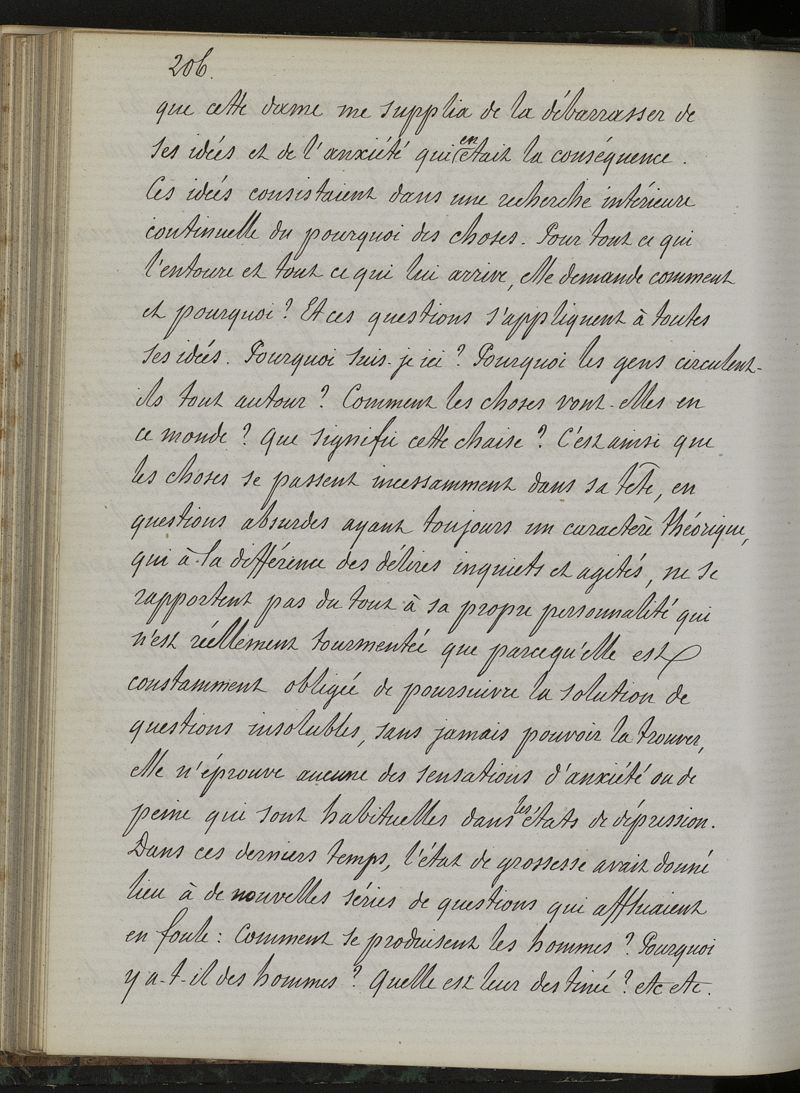 206.
que cette dame me supplia de la débarrasser de
ses idées et de l'anxiété qui en était la conséquence.
Ces idées consistaient dans une recherche intérieure
continuelle du pourquoi des choses. Pour tout ce qui
l'entoure et tout ce qui lui arrive, elle demande comment
et pourquoi? Et ces questions s'appliquent à toutes
ses idées. Pourquoi suis-je ici? Pourquoi les gens circulent-
ils tout autour? Comment les choses vont-elles en
ce monde? Que signifie cette chaise? C'est ainsi que
les choses se passent incessamment dans sa tête, en
questions absurdes ayant toujours un caractère théorique,
qui à la différence des délires inquiets et agités, ne se
rapportent pas du tout à sa propre personnalité qui
n'est réellement tourmentée que parcequ'elle est
constamment obligée de poursuivre la solution de
questions insolubles, sans jamais pouvoir la trouver,
elle n'éprouve aucune des sensations d'anxiété ou de
peine qui sont habituelles dans les états de dépression.
Dans ces derniers temps, l'état de grossesse avait donné
lieu à de nouvelles séries de questions qui affluaient
en foule: Comment se produisent les hommes? Pourquoi
y a-t-il des hommes? Quelle est leur destinée? etc etc.